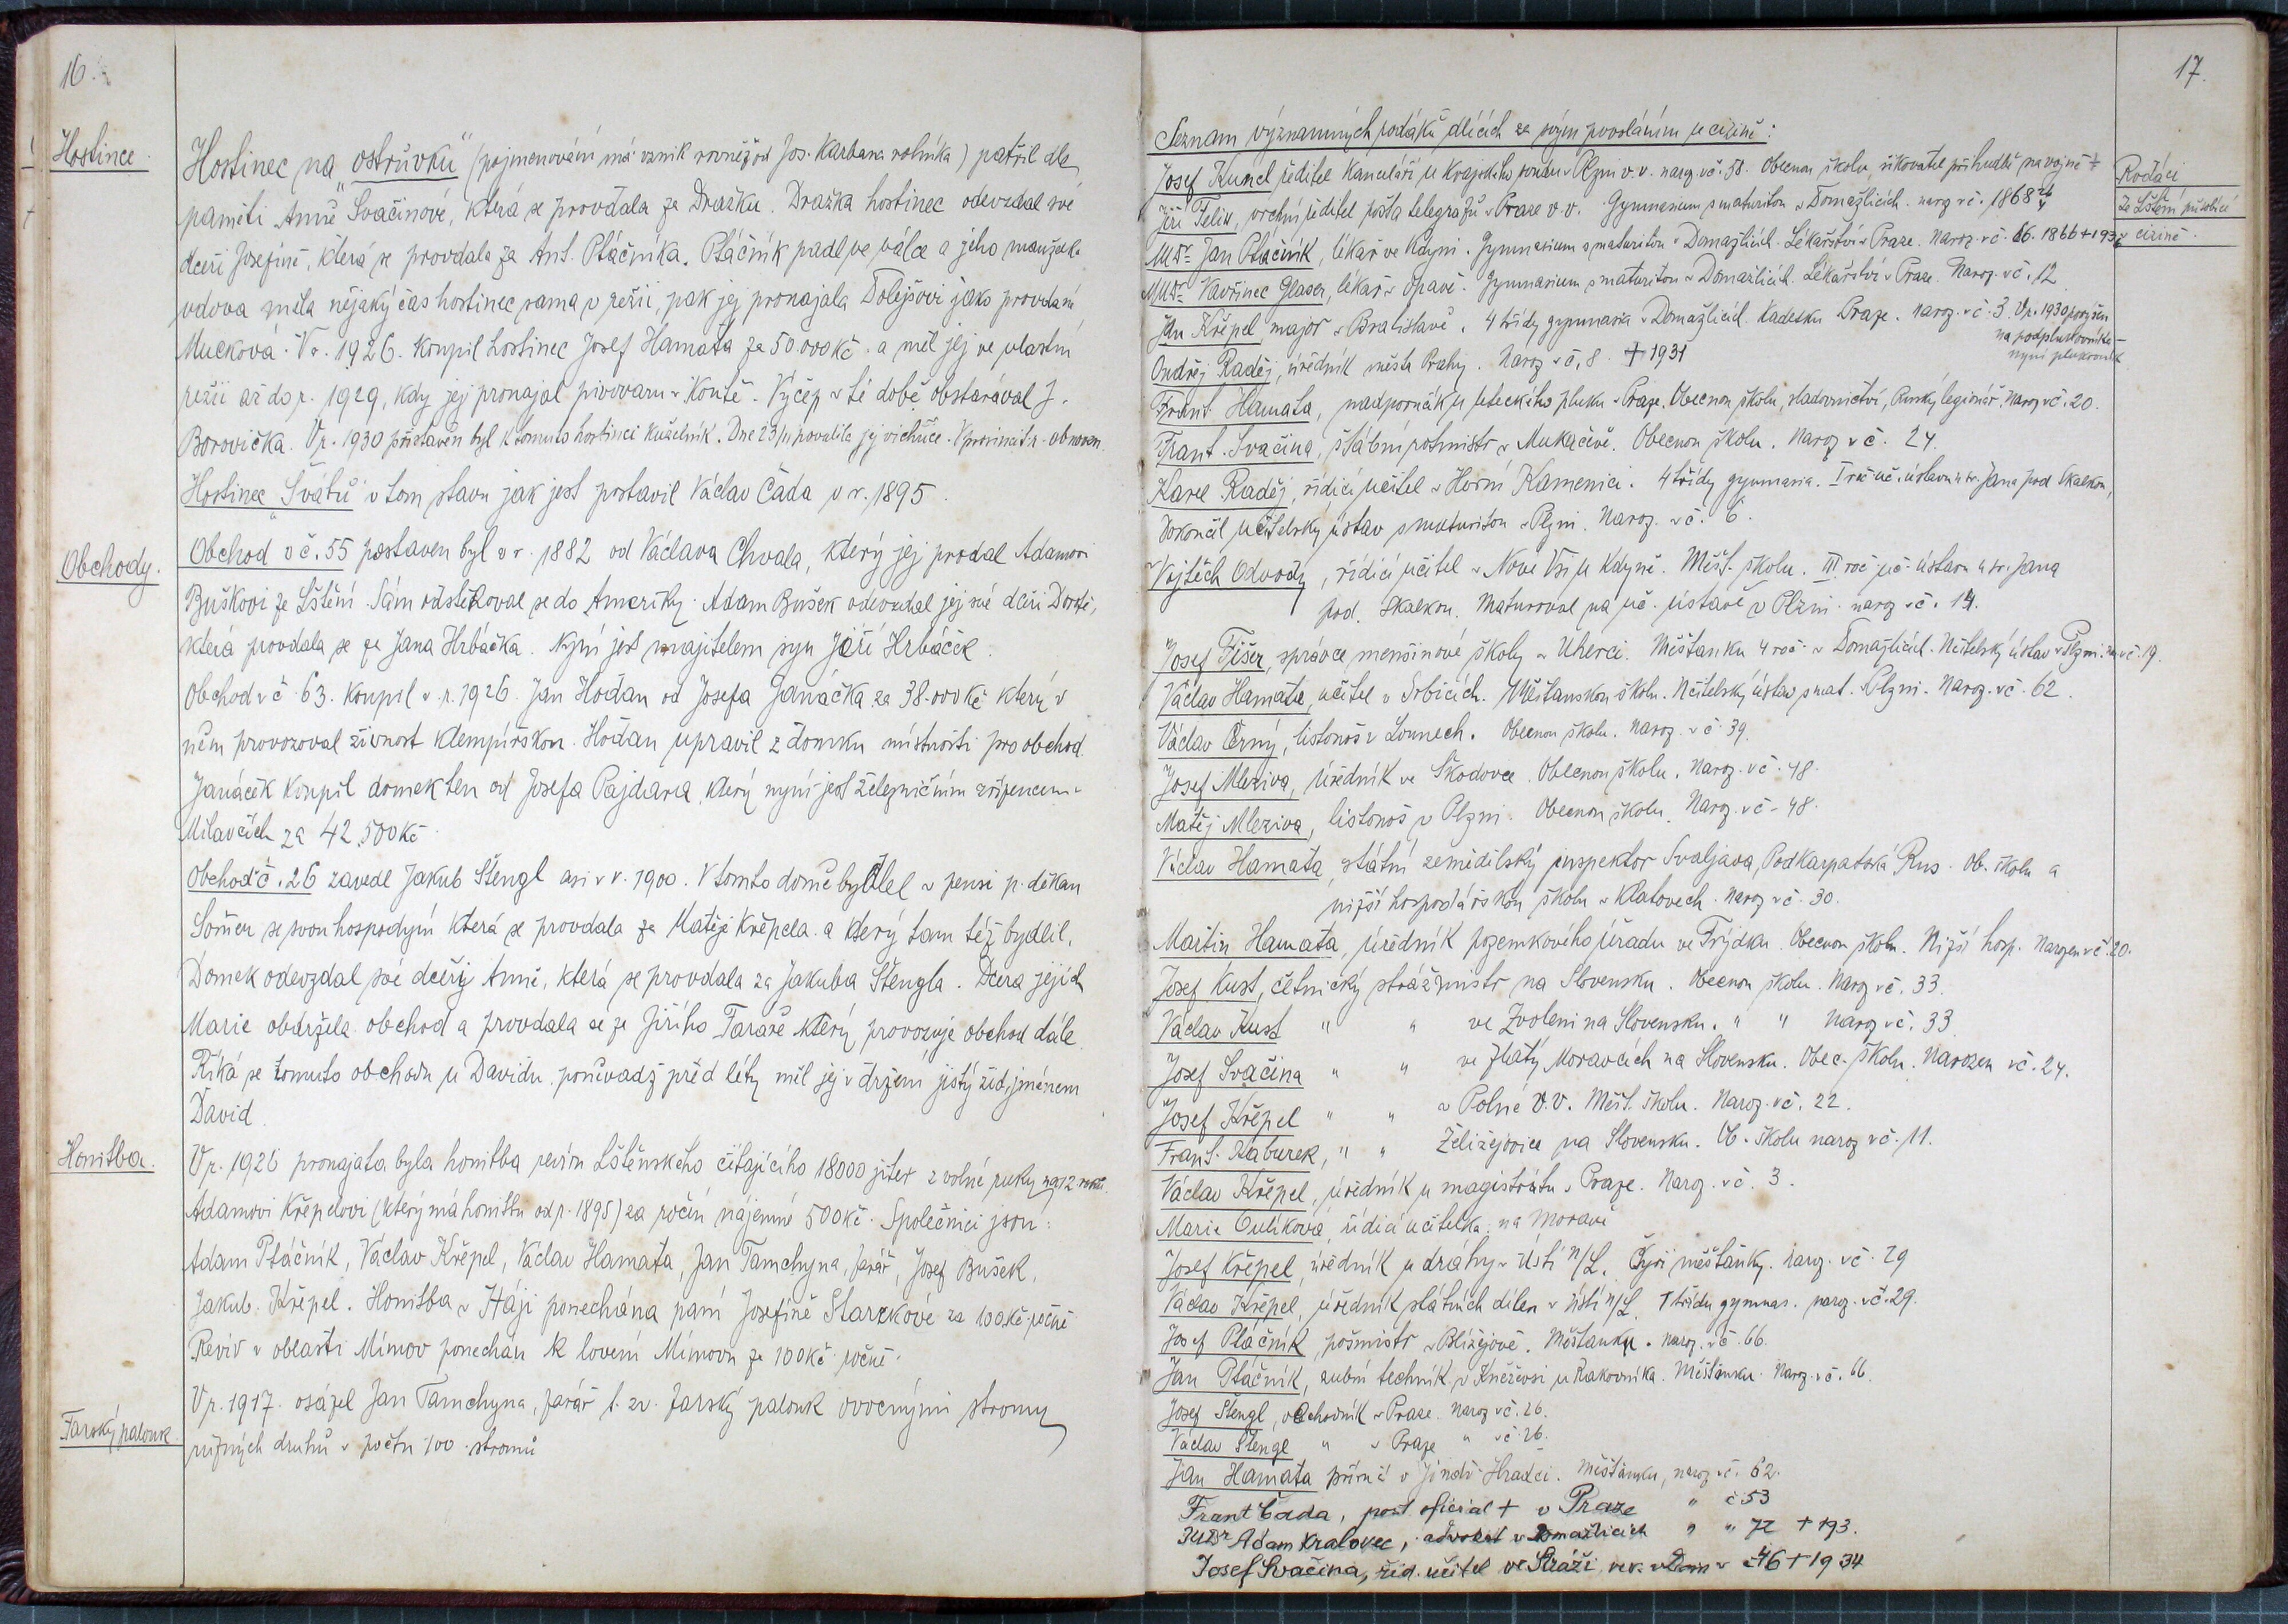 16.
Hostince.
Hostinec na „ostrůvku" (pojmenování má vznik rovněž od Jos. Karbana rolníka) patřil dle
paměti Anně Svačinové, která se provdala za Dražku. Dražka hostinec odevzdal své
dceři Josefině, která se provdala za Ant. Ptáčníka. Ptáčník padl ve válce a jeho manželka
vdova měla nějaký čas hostinec sama v režii, pak jej pronajala Tolejšovi jako provdaná
Mucková. V r. 1926. koupil hostinec Josef Hamata za 50.000 Kč. a měl jej ve vlastní
režii až do r. 1929, kdy jej pronajal pivovaru v Koutě. Výčep v té době obstarával J.
Borovička. V r. 1930 přistavěn byl k tomuto hostinci kuželník. Dne 23/11 povalila jej vichřice. V prosinci t.r. obnoven.
Hostinec „Švátů" v tom stavu jak jest postavil Václav Čada v r. 1895.
Obchody.
Obchod v č. 55 postaven byl v r. 1882 od Václava Chvala, který jej prodal Adamovi
Buškovi ze Lštění. Sám odstěhoval se do Ameriky. Adam Bušek odevzdal jej své dceři Dorotě,
která provdala se za Jana Hrbáčka. Nyní jest majitelem syn Jiří Hrbáček.
Obchod v č. 63. koupil v r. 1926 Jan Hodan od Josefa Janáčka za 38.000 Kč který v
něm provozoval živnost klempířskou. Hodan upravil z domku místnosti pro obchod.
Janáček koupil domek ten od Josefa Pajdara, který nyní jest železničním zřízencem v
Milavčích za 42.500 Kč.
Obchod č. 26 zavedl Jakub Štengl asi v r. 1900. V tomto domě bydlel v pensi p. děkan
Somer se svou hospodyní která se provdala za Matěje Křepela a který tam též bydlil.
Domek odevzdal své dceři Anně, která se provdala za Jakuba Štengla. Dcera jejich
Marie obdržela obchod a provdala se za Jiřího Taraše který provozuje obchod dále.
Říká se tomuto obchodu u Davidu poněvadž před léty měl jej v držení jistý žid jménem
David.
Honitba.
V r. 1926 pronajata byla honitba revíru Lštěnského čítajícího 18000 jiter z volné ruky na 12 roků.
Adamovi Křepelovi (který má honitbu od r. 1895) za roční nájemné 500 Kč. Společníci jsou:
Adam Ptáčník, Václav Křepel, Václav Hamata, Jan Tamchyna, farář, Josef Bušek,
Jakub Křepel. Honitba v Háji ponechána paní Josefině Starckové za 100 Kč ročně
Revír v oblasti Mímov ponechán k lovení Mímovu za 100 Kč ročně.
Farský palouk.
V r. 1917. osázel Jan Tamchyna, farář t. zv. farský palouk ovocnými stromy
různých druhů v počtu 100 stromů
17.
Rodáci
ze Lštění působící
v cizině.
Seznam významných rodáků dlících za svým povoláním v cizině:
Josef Kuncl ředitel kanceláří u krajského soudu v Plzni v.v. naroz. v č. 58. Obecnou školu, šikovatel při hudbě na vojně
Jiří Felix, vrchní ředitel pošt a telegrafů v Praze v.v. Gymnasium s maturitou v Domažlicích. naroz v č. 1868
MUDr Jan Ptáčník, lékař ve Kdyni. Gymnasium s maturitou v Domažlicích. Lékařství v Praze. Naroz. v č. 66. 1866 + 193
MUDr Vavřinec Glaser, lékař v Opavě. Gymnasium s maturitou v Domažlicích. Lékařství v Praze. Naroz. v č. 12
Jan Křepel major v Bratislavě. 4 třídy gymnasia v Domažlicích. Kadetku Praze. naroz. v č. 3. V r. 1930 povýšen
na podplukovníka
nyní plukovník
Ondřej Raděj, úředník města Prahy. Naroz v č. 8. + 1931
Frant. Hamata, nadporučík u leteckého pluku v Praze. Obecnou školu, sladovnictví, Ruský legionář. Naroz v č. 20.
Frant. Svačina, štábní rotmistr v Mukačevě. Obecnou školu. Naroz v č. 24.
Karel Raděj, řídící učitel v Horní Kamenici. 4 třídy gymnasia. I roč uč. ústavu u sv. Jana pod Skalkou,
Dokončil učitelský ústav s maturitou v Plzni. Naroz. v č. 6.
Vojtěch Odvody, řídící učitel v Nové Vsi u Kdyně. Měšť. školu. III. roč uč. ústavu u sv. Jana
pod. Skalkou. Maturoval na uč. ústavě v Plzni. naroz v č. 14.
Josef Fišer, správce menšinové školy v Úherci. Měšťanku 4 roč. v Domažlicích. Učitelský ústav v Plzni. nar v č. 19.
Václav Hamata, učitel v Srbicích. Měšťanskou školu. Učitelský ústav s mat. v Plzni. Naroz. v č. 62.
Václav Černý, listonoš v Lounech. Obecnou školu. Naroz. v č. 39.
Josef Mleziva, úředník ve Škodovce. Obecnou školu. Naroz. v č. 48.
Matěj Mleziva, listonoš v Plzni. Obecnou školu. Naroz. v č. 48.
Václav Hamata, státní zemědělský inspektor Svaljava, Podkarpatská Rus. Ob. školu a
nižší hospodářskou školu v Klatovech. Naroz v č. 30.
Martin Hamata, úředník pozemkového úřadu ve Frýdku. Obecnou školu. Nižší hosp. Narozen v č. 20.
Josef Kust, četnický strážmistr na Slovensku. Obecnou školu. Naroz v č. 33.
Václav Kust " " ve Zvoleni na Slovensku. " " Naroz v č. 33
Josef Svačina " " ve Zlatý Moravcích na Slovensku. Obec. školu. Narozen v č. 24.
Josef Křepel " " v Polné v.v. Měšť. školu. Naroz. v č. 22.
Frant. Kaburek, " " Želižejovice na Slovensku. Ob. školu naroz v č. 11.
Václav Křepel, úředník u magistrátu v Praze. Naroz. v č. 3.
Marie Culíková, řídící učitelka na Moravě
Josef Křepel, úředník u dráhy v Ústí n/L. Čtyři měšťanky. naroz. v č. 29
Václav Křepel, úředník státních dílen v Ústí n/L. 1 třídu gymnas. naroz. v č. 29.
Josef Ptáčník, pošmistr v Blížejově. Měšťanku. naroz. v č. 66.
Jan Ptáčník, zubní technik v Kněževsi u Rakovníka. Měšťanku. Naroz. v č. 66.
Josef Štengl, obchodník v Praze. Naroz v č. 26.
Václav Štengl " v Praze " v č. 26.
Jan Hamata v Jindř. Hradci. Měšťanku, naroz v č. 62.
Frant Čada, post. oficial + v Praze " č 53
JUDr Adam Kralovec, advokat v Domažlicích " " 72 + 193.
Josef Svačina, říd. učitel ve Stráži, č 46 + 1934